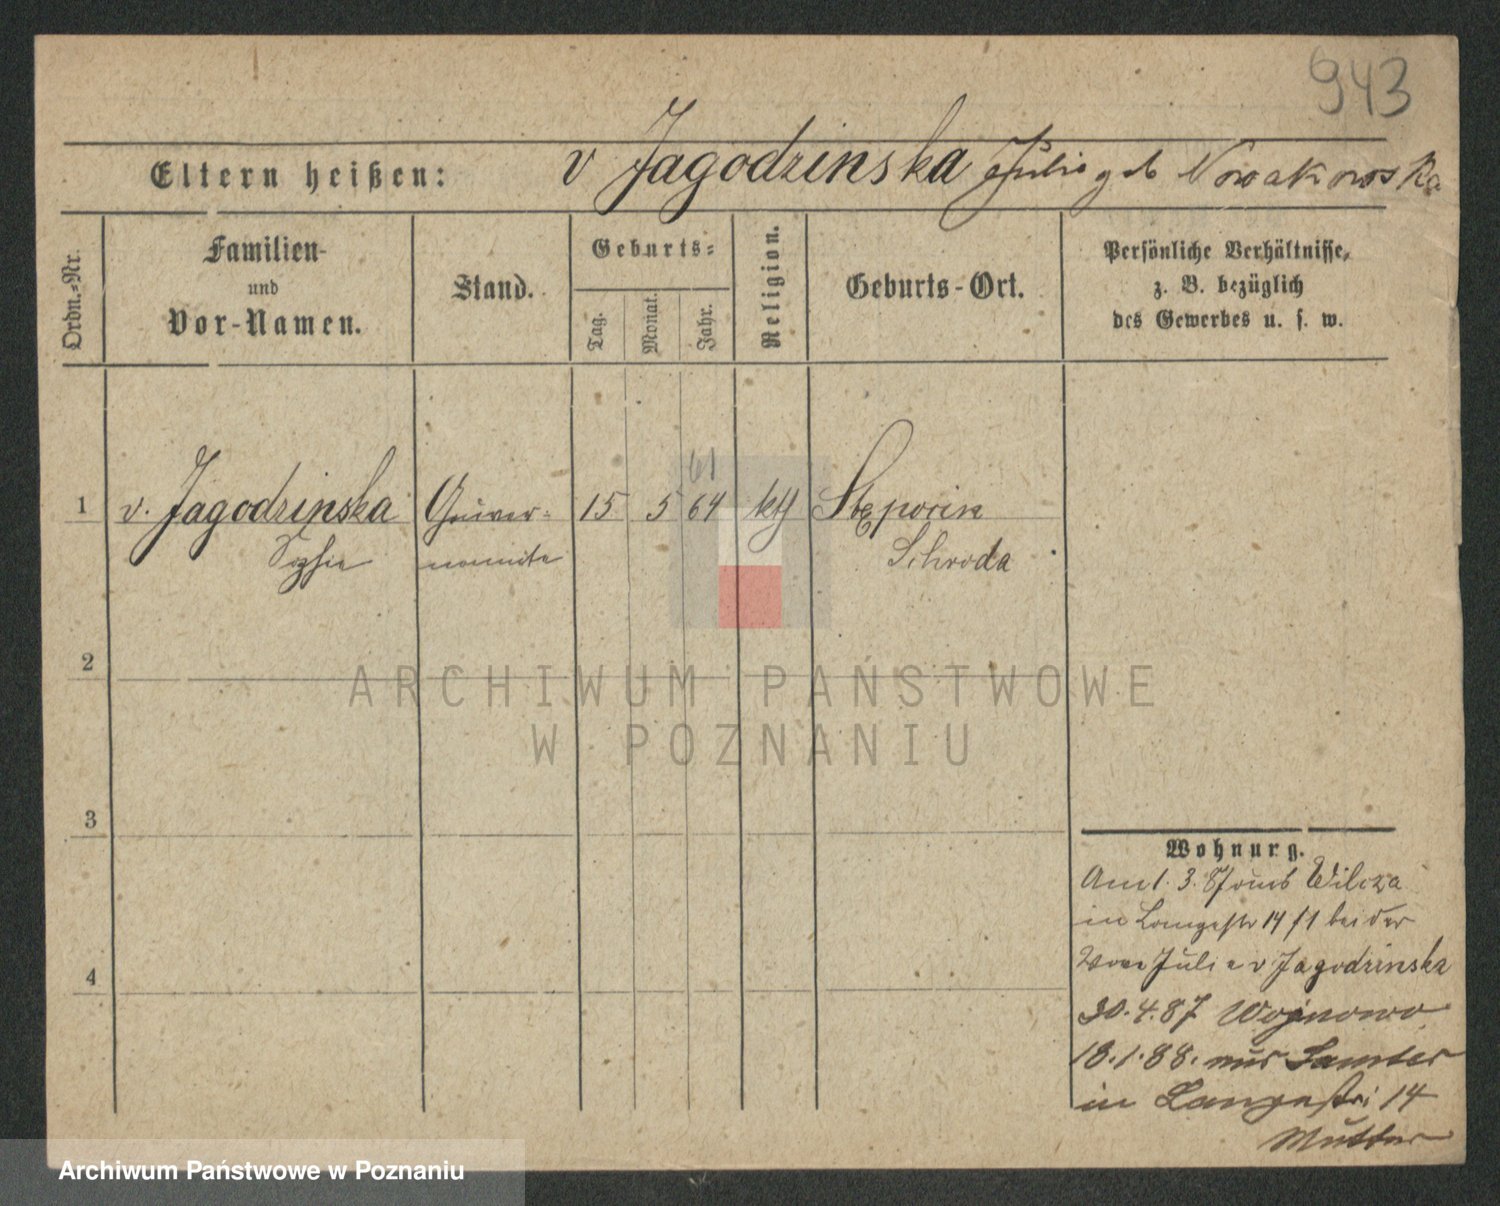 943
Eltern heißen: v Jagodzinska Julie geb Nowakowska
Ordn.-Nr.
Familien-
und
Vor-Namen.
Stand.
Geburts-
Tag.
Monat.
Jahr.
Religion.
Geburts-Ort.
Persönliche Verhältnisse,
z. B. bezüglich
des Gewerbes u. s. w.
61
1 v. Jagodzinska Gouver- 15 5 64 kth
Sophie Schroda
2
ARCHIWUM PAŃSTWOWE
W POZNANIU
3
Wohnung.
3. Wilcza
in Langestr 14 bei der
Julie v Jagodzinska
4
30.4.87 Wojnowo
18.1.88. aus Samter
in Langestr 14
Mutter
Archiwum Państwowe w Poznaniu